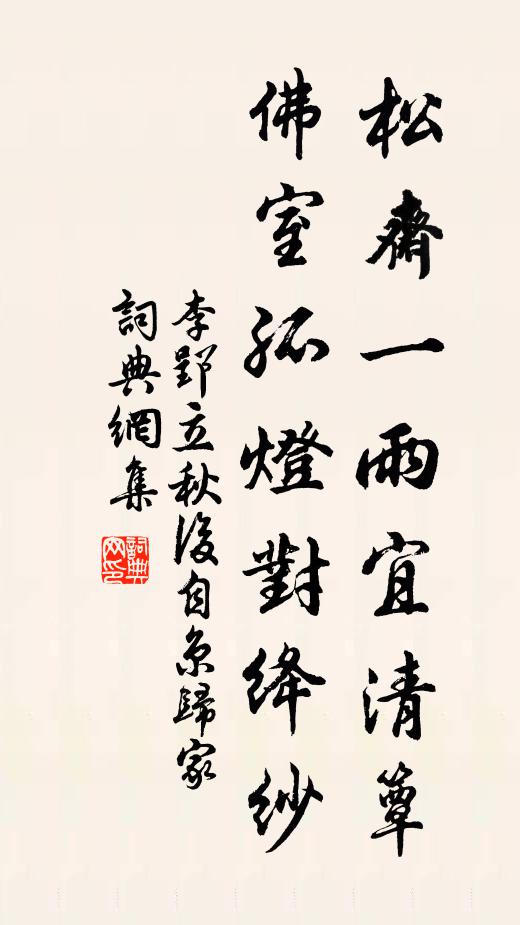 松齋一雨宜清簟
佛室孤燈對絳紗
李郢立秋後自京歸家
詞典網集
詞典網印